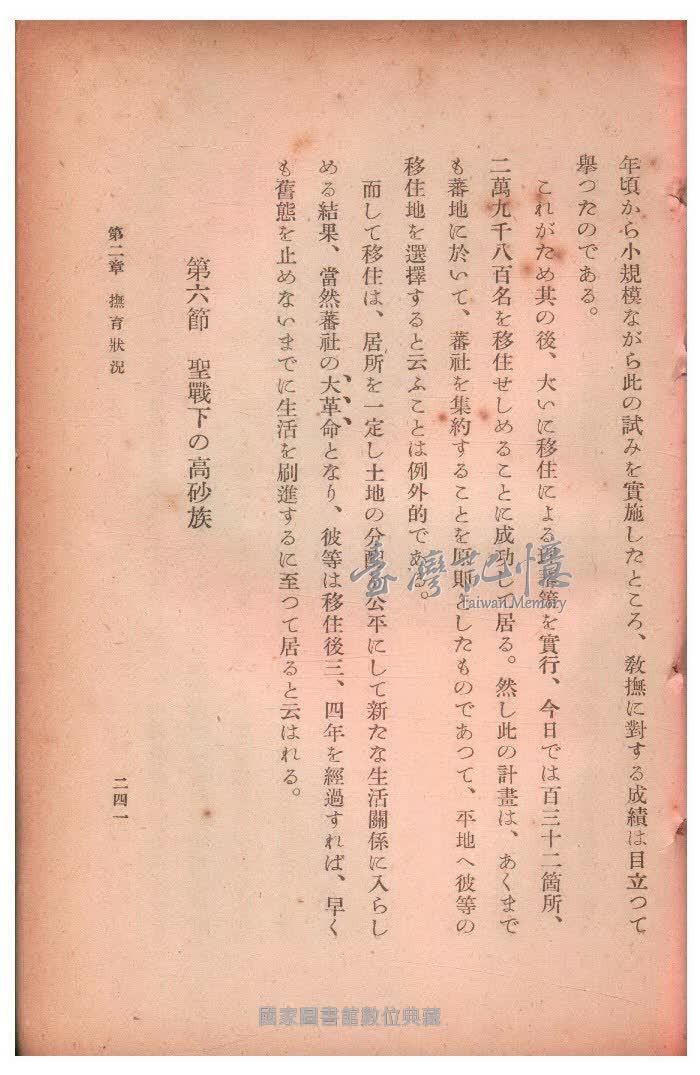 年頃から小規模ながら此の試みを實施したところ、敎撫に對する成績は目立つて
擧つたのである。
これがため其の後、大いに移住による 策を實行、今日では百三十二箇所、
二萬九千八百名を移住せしめることに成功して居る。然し此の計畫は、あくまで
も蕃地に於いて、蕃社を集約することを原則としたものであつて、平地へ彼等の
移住地を選擇すると云ふことは例外的である。
而して移住は、居所を一定し土地の分配を公平にして新たな生活關係に入らし
める結果、當然蕃社の大革命となり、彼等は移住後三、四年を經過すれば、早く
も舊態を止めないまでに生活を刷進するに至つて居ると云はれる。
第六節 聖戰下の高砂族
第二章 撫育狀況
二四一
臺灣記憶
Taiwan Memory
國家圖書館數位典藏